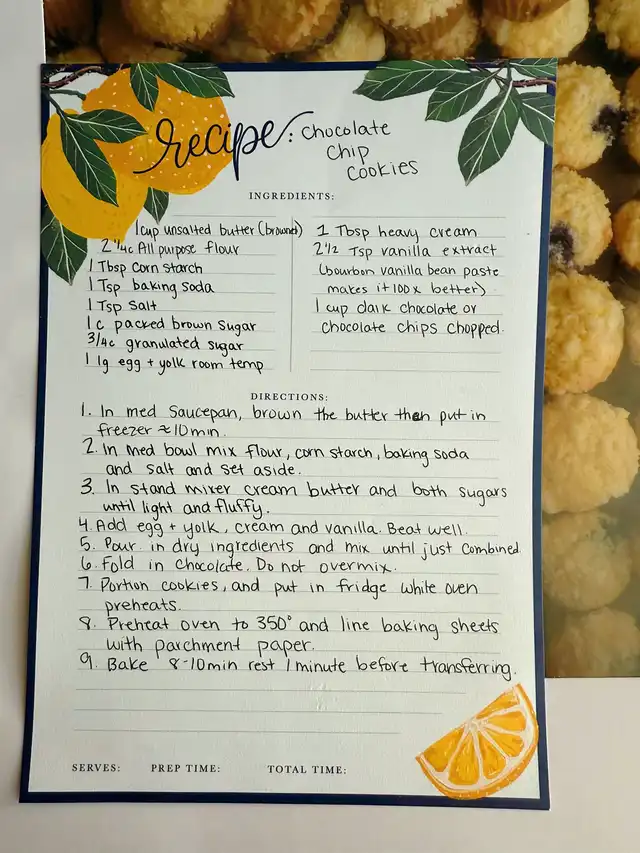 recipe: Chocolate
Chip
Cookies
INGREDIENTS:
1cup unsalted butter (browned)
2 1/4c All purpose flour
1 Tbsp corn starch
1 Tsp baking soda
1 Tsp salt
1 c packed brown sugar
3/4c granulated sugar
1 lg egg + yolk room temp
1 Tbsp heavy cream
2 1/2 Tsp vanilla extract
(bourbon vanilla bean paste
makes it 100x better)
1 cup dark chocolate or
chocolate chips chopped.
DIRECTIONS:
1. In med saucepan, brown the butter then put in
freezer ≈10min.
2. In med bowl mix flour, corn starch, baking soda
and salt and set aside.
3. In stand mixer cream butter and both sugars
until light and fluffy.
4. Add egg + yolk, cream and vanilla. Beat well.
5. Pour in dry ingredients and mix until just combined
6. Fold in chocolate. Do not overmix.
7. Portion cookies, and put in fridge white oven
preheats.
8. Preheat oven to 350° and line baking sheets
with parchment paper.
9. Bake 8-10min rest 1minute before transferring.
SERVES: PREP TIME: TOTAL TIME: